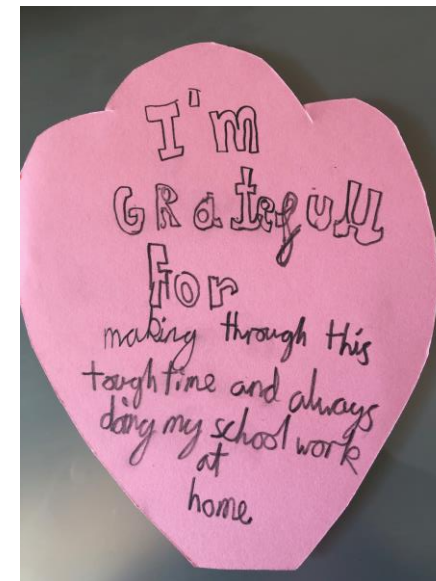 I'm
GRatefull
For
making through this
tough time and always
doing my school work
at
home